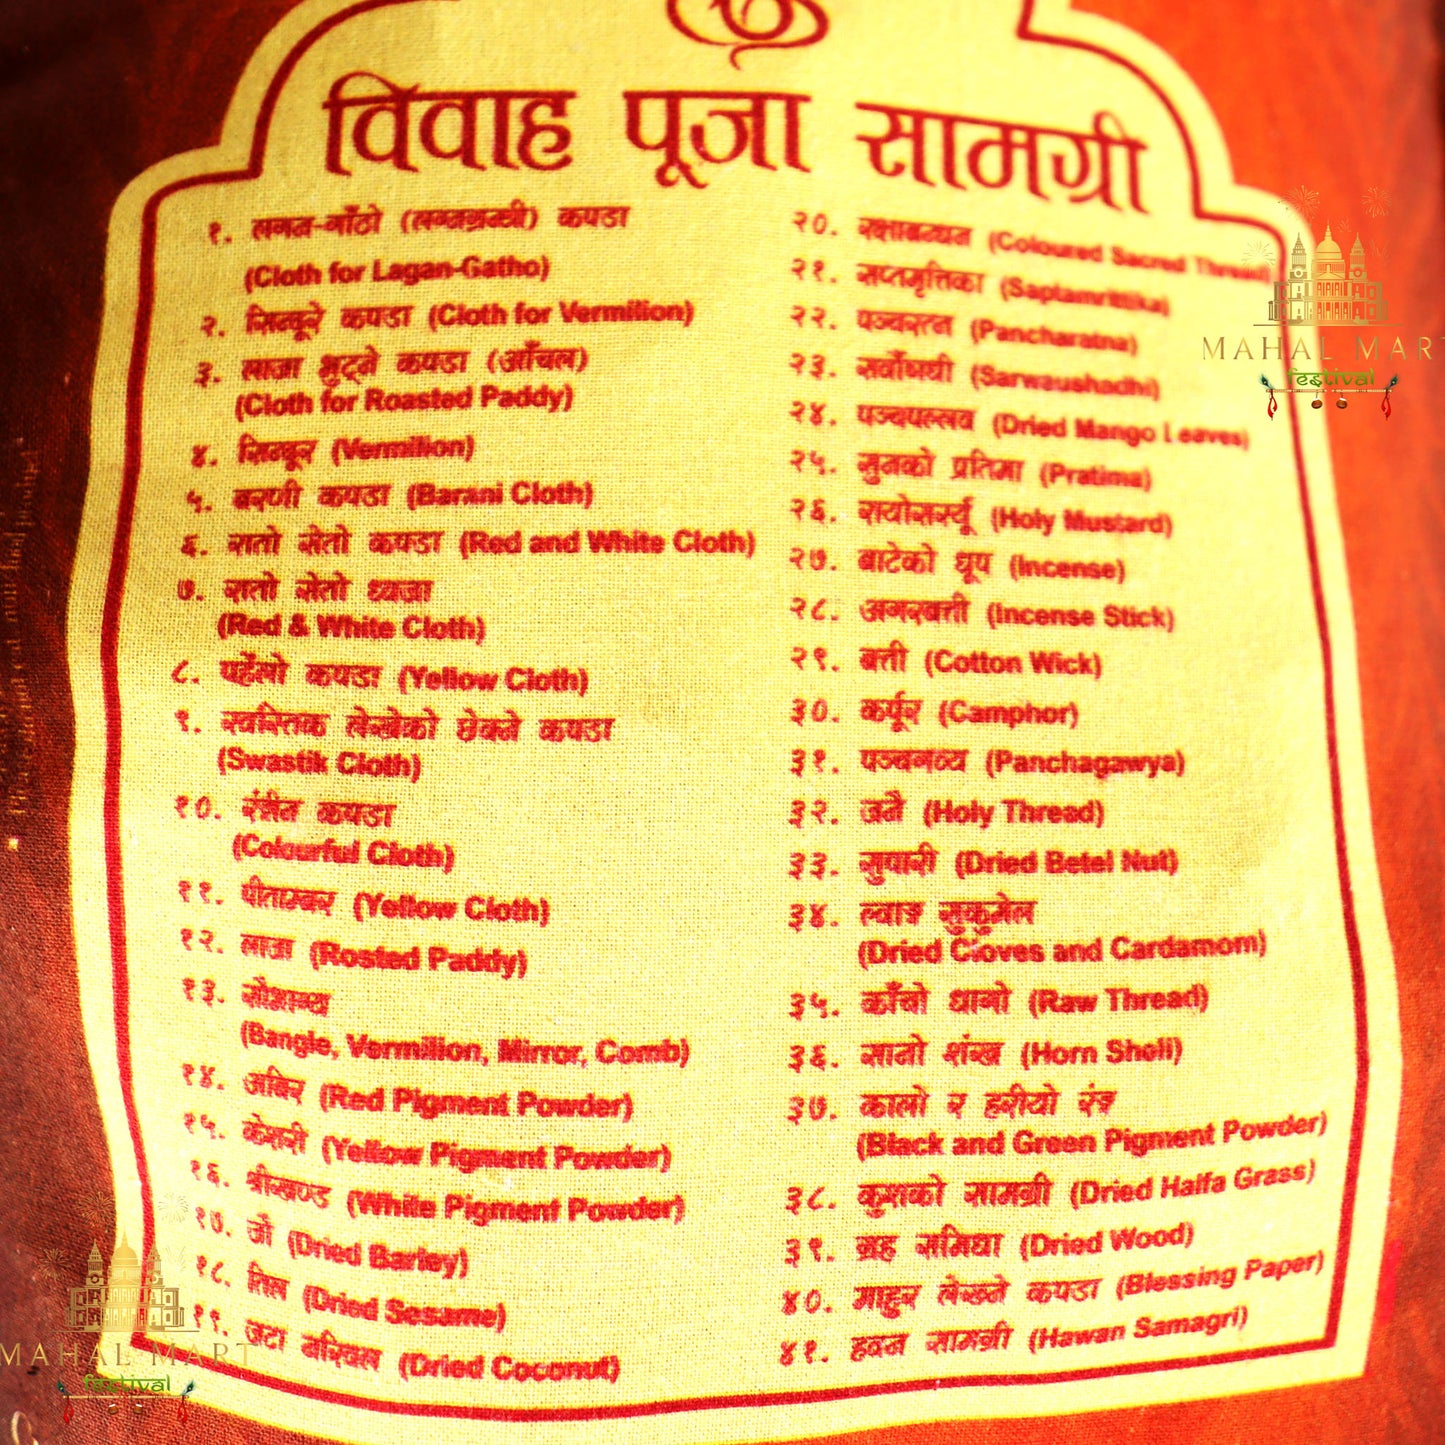 विवाह पूजा सामग्री
१. लगन-गाँठो (लग्नग्रन्थी) कपडा
(Cloth for Lagan-Gatho)
२. सिन्दूरे कपडा (Cloth for Vermilion)
३. लाजा भुट्ने कपडा (आँचल)
(Cloth for Roasted Paddy)
४. सिन्दूर (Vermilion)
५. बरणी कपडा (Barani Cloth)
६. रातो सेतो कपडा (Red and White Cloth)
७. रातो सेतो ध्वजा
(Red & White Cloth)
८. पहेँलो कपडा (Yellow Cloth)
९. स्वस्तिक लेखेको छेक्ने कपडा
(Swastik Cloth)
१०. रंगीन कपडा
(Colourful Cloth)
११. पीताम्बर (Yellow Cloth)
१२. लाजा (Rosted Paddy)
१३. सौभाग्य
(Bangle, Vermilion, Mirror, Comb)
१४. अबिर (Red Pigment Powder)
१५. केशरी (Yellow Pigment Powder)
१६. श्रीखण्ड (White Pigment Powder)
१७. जौ (Dried Barley)
१८. तिल (Dried Sesame)
१९. जटा नरिवल (Dried Coconut)
२०. रक्षाबन्धन (Coloured Sacred Thread)
२१. सप्तमृत्तिका (Saptamrittika)
२२. पञ्चरत्न (Pancharatna)
२३. सर्वौषधी (Sarwaushadhi)
२४. पञ्चपल्लव (Dried Mango Leaves)
२५. सुनको प्रतिमा (Pratima)
२६. रायोसर्स्यू (Holy Mustard)
२७. बाटेको धूप (Incense)
२८. अगरबत्ती (Incense Stick)
२९. बत्ती (Cotton Wick)
३०. कर्पूर (Camphor)
३१. पञ्चगव्य (Panchagawya)
३२. जनै (Holy Thread)
३३. सुपारी (Dried Betel Nut)
३४. ल्वाङ सुकुमेल
(Dried Cloves and Cardamom)
३५. काँचो धागो (Raw Thread)
३६. सानो शंख (Horn Shell)
३७. कालो र हरीयो रंङ
(Black and Green Pigment Powder)
३८. कुशको सामग्री (Dried Halfa Grass)
३९. ग्रह समिधा (Dried Wood)
४०. माहुर लेख्ने कपडा (Blessing Paper)
४१. हवन सामग्री (Hawan Samagri)
MAHAL MART
festival
MAHAL MART
festival